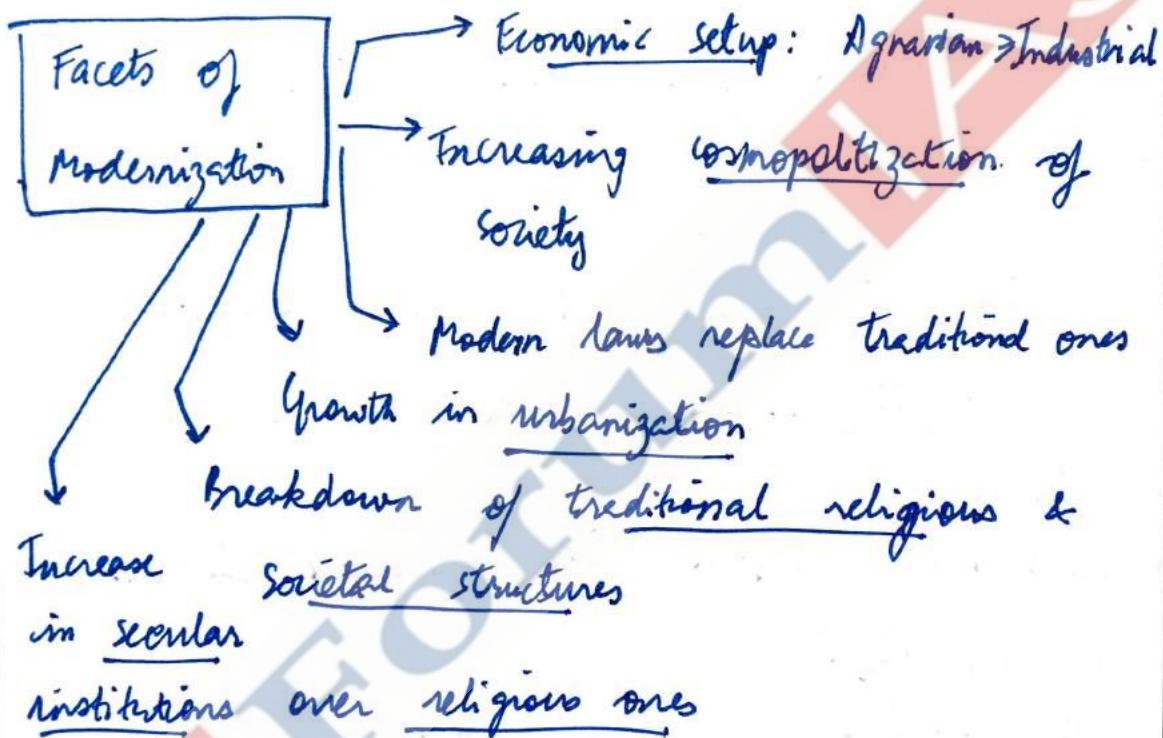 Facets of
Modernization
Economic Setup: Agrarian > Industrial
Increasing cosmopolitization of
Society
Modern laws replace traditional ones
Growth in urbanization
Breakdown of traditional religious &
Societal structures
Increase
in secular
institutions over religious ones
ForumIAS